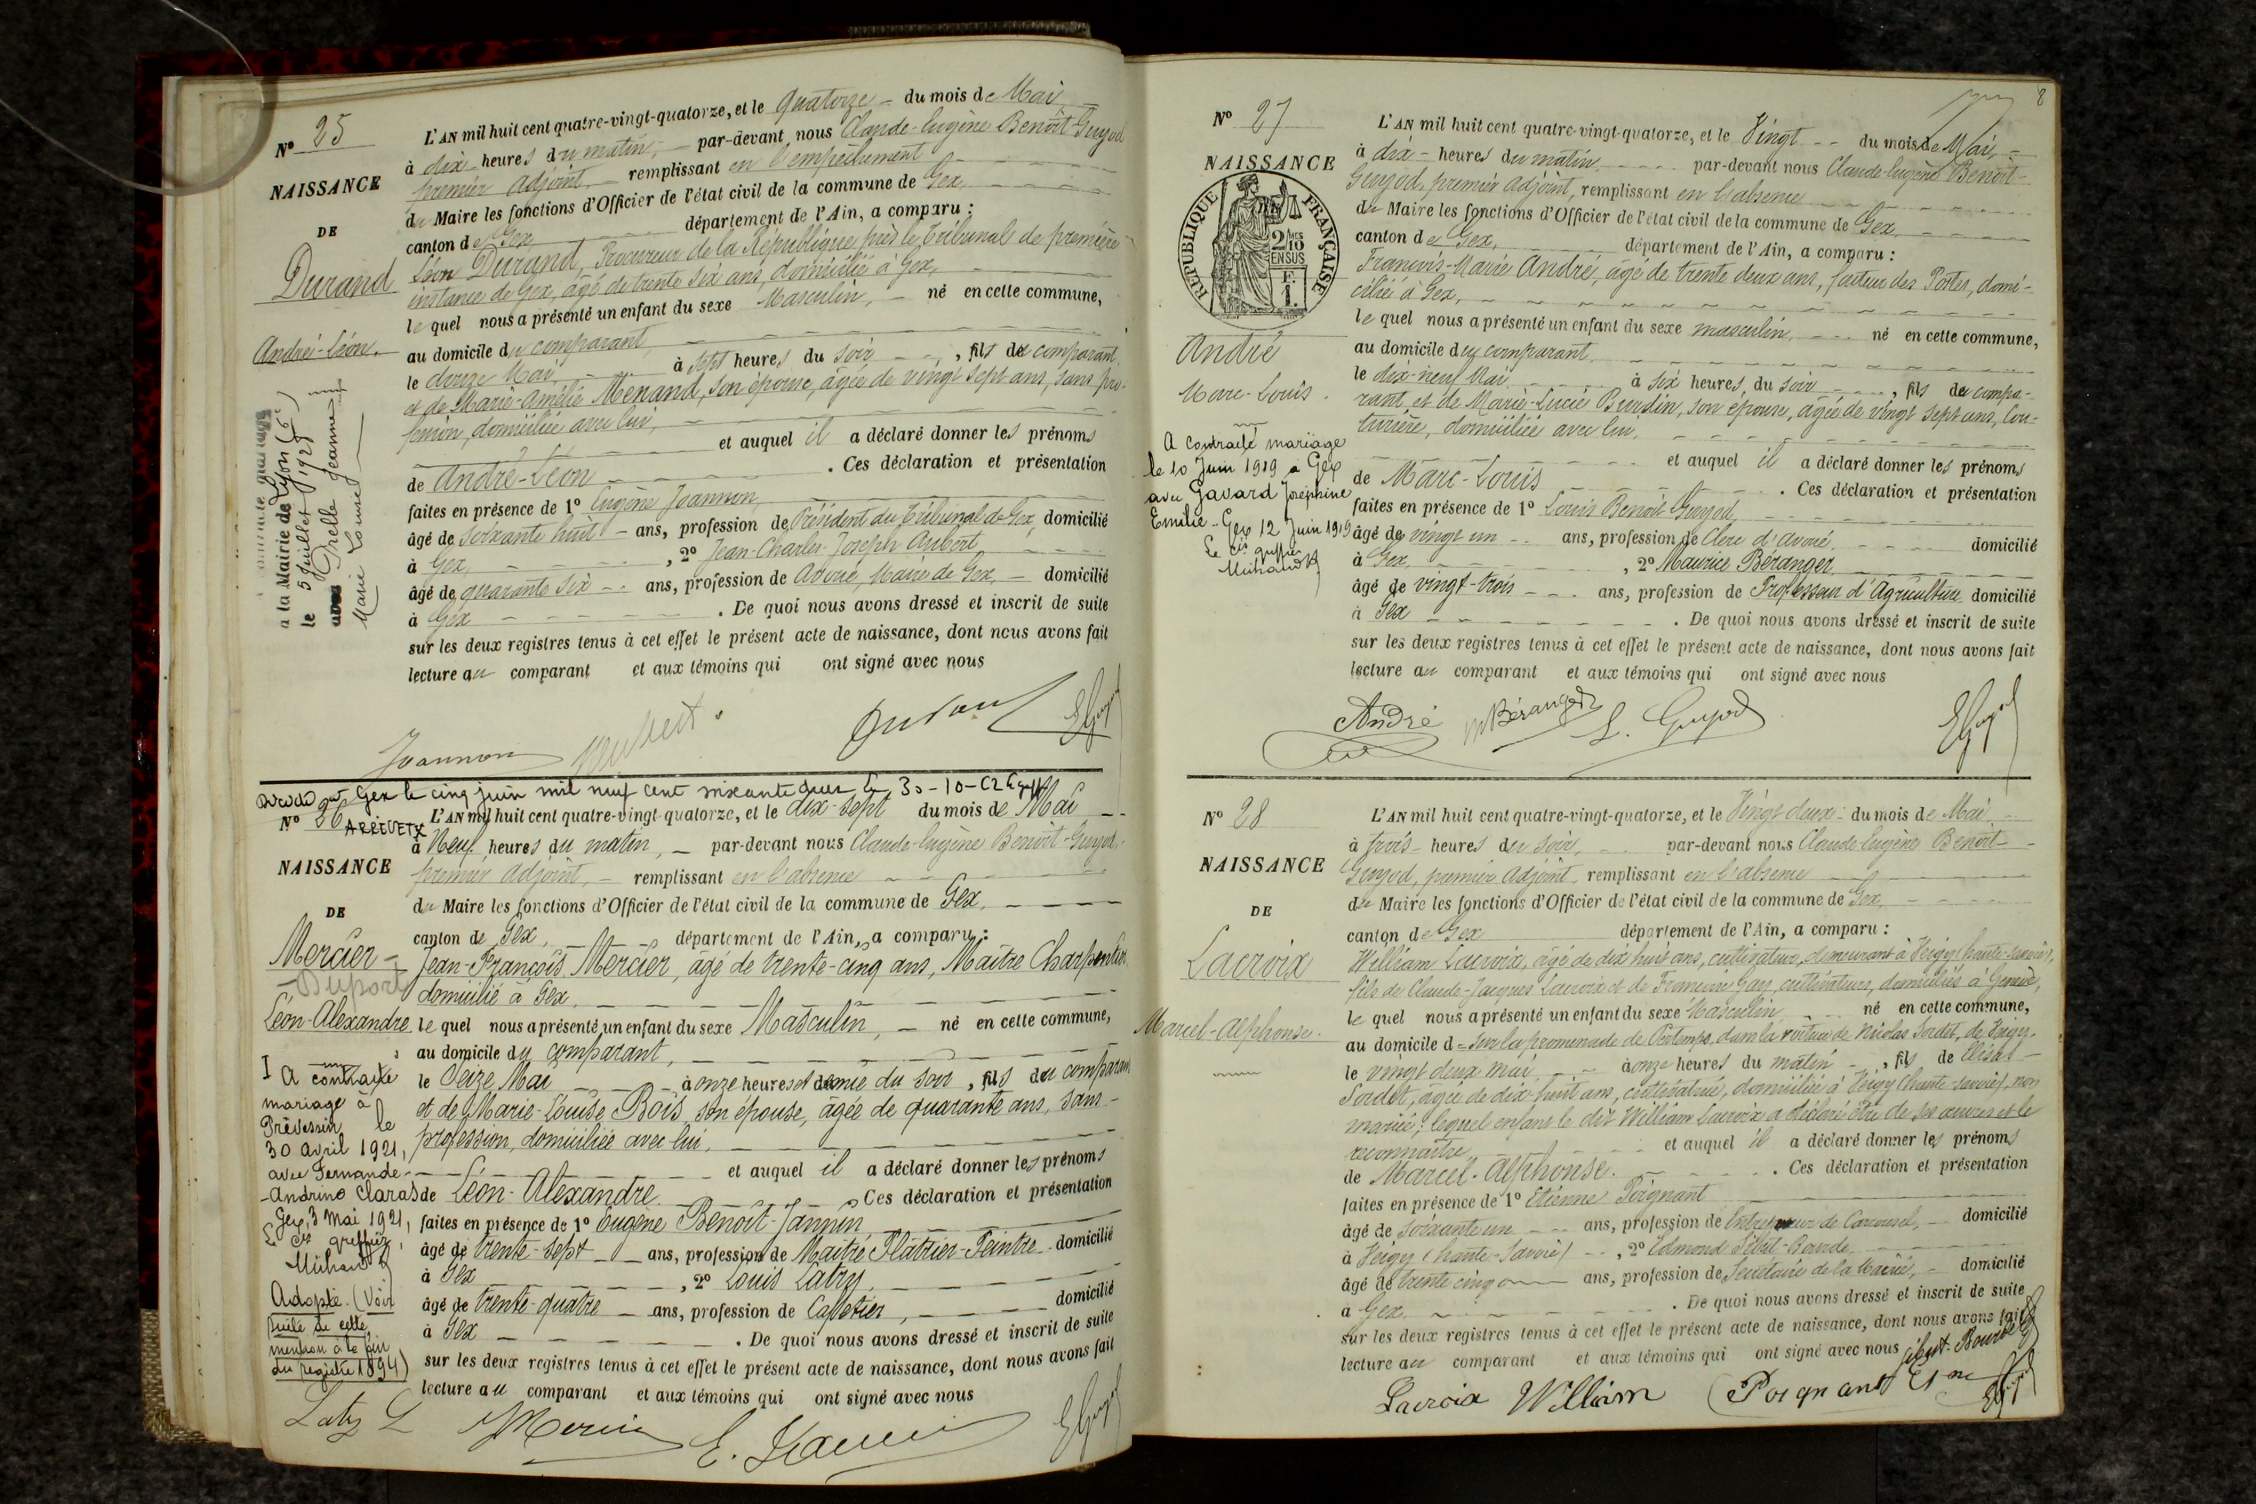 N° 25
NAISSANCE
DE
Durand
André-Léon.
à la Mairie de Lyon (6e)
le 5 Juillet 1928
avec Drelle Jeanne
Marie Louise
L'AN mil huit cent quatre-vingt-quatorze, et le quatorze - du mois de Mai
à dix heures du matin, - par-devant nous Claude-Eugène Benoît-Guyod
premier adjoint, - remplissant en l'empêchement
du Maire les fonctions d'Officier de l'état civil de la commune de Gex,
canton de Gex département de l'Ain, a comparu :
Léon Durand, Procureur de la République près le Tribunal de première
instance de Gex, âgé de trente six ans, domicilié à Gex,
le quel nous a présenté un enfant du sexe Masculin, - né en cette commune,
au domicile du comparant,
le douze Mai, à sept heures du soir, fils du comparant
et de Marie-Amélie Menand, son épouse, âgée de vingt sept ans, sans pro-
fession, domiciliée avec lui,
et auquel il a déclaré donner les prénoms
de André-Léon . Ces déclaration et présentation
faites en présence de 1° Eugène Joannon,
âgé de soixante huit - ans, profession de Président du Tribunal de Gex, domicilié
à Gex, , 2° Jean-Charles-Joseph Aubert
âgé de quarante six - ans, profession de Avoué, Maire de Gex, - domicilié
à Gex . De quoi nous avons dressé et inscrit de suite
sur les deux registres tenus à cet effet le présent acte de naissance, dont nous avons fait
lecture au comparant et aux témoins qui ont signé avec nous
Joannon Aubert Durand EGuyod
Décédé à Gex le cinq juin mil neuf cent soixante deux le 30-10-62
N° 26 ARRIVETX
NAISSANCE
DE
Mercier -
- Duport
Léon-Alexandre
I A contracté
mariage à
Prévessin le
30 avril 1921,
avec Fernande-
-Andrino Claras
Gex, 3 Mai 1921,
Le Cis greffier,
Michaud
Adopté. (Voir
suite de cette
mention à la fin
du registre 1894)
L'AN mil huit cent quatre-vingt-quatorze, et le dix-sept du mois de Mai
à Neuf heures du matin, - par-devant nous Claude-Eugène Benoît-Guyod,
premier adjoint, - remplissant en l'absence
du Maire les fonctions d'Officier de l'état civil de la commune de Gex,
canton de Gex, département de l'Ain, a comparu :
Jean-François Mercier, âgé de trente-cinq ans, Maître Charpentier
domicilié à Gex.
le quel nous a présenté un enfant du sexe Masculin, - né en cette commune,
au domicile du comparant,
le Seize Mai à onze heures et demie du soir, fils du comparant
et de Marie-Louise Bois, son épouse, âgée de quarante ans, sans-
profession, domiciliée avec lui,
et auquel il a déclaré donner les prénoms
de Léon-Alexandre. Ces déclaration et présentation
faites en présence de 1° Eugène Benoît-Jannin
âgé de trente-sept - ans, profession de Maître Platrier-Peintre - domicilié
à Gex , 2° Louis Latry,
âgé de trente-quatre - ans, profession de Cafetier, domicilié
à Gex . De quoi nous avons dressé et inscrit de suite
sur les deux registres tenus à cet effet le présent acte de naissance, dont nous avons fait
lecture au comparant et aux témoins qui ont signé avec nous
Latry L Mercier E. Jannin EGuyod
8
N° 27
NAISSANCE
RÉPUBLIQUE FRANÇAISE
2/10 EN SUS
F.
1.
André
Marc-Louis.
A contracté mariage
le 10 Juin 1919 à Gex
avec Gavard Joséphine
Emilie - Gex 12 Juin 1919
Le Cis greffier
Michaud
L'AN mil huit cent quatre-vingt-quatorze, et le Vingt - - du mois de Mai, -
à dix - heures du matin, par-devant nous Claude-Eugène Benoît-
Guyod, premier adjoint, remplissant en l'absence
du Maire les fonctions d'Officier de l'état civil de la commune de Gex,
canton de Gex, département de l'Ain, a comparu :
François-Marie André, âgé de trente deux ans, facteur des Postes, domi-
cilié à Gex,
le quel nous a présenté un enfant du sexe masculin, né en cette commune,
au domicile du comparant,
le dix-neuf Mai, à six heures du soir, fils du compa-
rant et de Marie-Lucie Burdin, son épouse, âgée de vingt sept ans, cou-
turière, domiciliée avec lui,
et auquel il a déclaré donner les prénoms
de Marc-Louis . Ces déclaration et présentation
faites en présence de 1° Louis Benoît-Guyod,
âgé de vingt un - - ans, profession de Clerc d'avoué, domicilié
à Gex , 2° Maurice Béranger
âgé de vingt-trois - - - ans, profession de Professeur d'Agriculture domicilié
à Gex . De quoi nous avons dressé et inscrit de suite
sur les deux registres tenus à cet effet le présent acte de naissance, dont nous avons fait
lecture au comparant et aux témoins qui ont signé avec nous
André M Béranger L. Guyod EGuyod
N° 28
NAISSANCE
DE
Lacroix
Marcel-Alphonse.
L'AN mil huit cent quatre-vingt-quatorze, et le Vingt deux - du mois de Mai -
à trois - heures du soir, par-devant nous Claude Eugène Benoît-
Guyod, premier adjoint, remplissant en l'absence
du Maire les fonctions d'Officier de l'état civil de la commune de Gex,
canton de Gex département de l'Ain, a comparu :
William Lacroix, âgé de dix huit ans, cultivateur, demeurant à Veigy (haute-savoie),
fils de Claude-Jacques Lacroix et de Francine Gay, cultivateurs, domiciliés à Genève,
le quel nous a présenté un enfant du sexe Masculin - né en cette commune,
au domicile d = sur la promenade de Pertemps, dans la voiture de Nicolas Sordet, de Veigy.
le vingt deux mai, à onze heures du matin - , fils de Elisa
Sordet, âgée de dix-huit ans, cultivatrice, domiciliée à Veigy (haute-savoie), non
mariée ; lequel enfant le dit William Lacroix a déclaré être de ses œuvres et le
reconnaître et auquel il a déclaré donner les prénoms
de Marcel-Alphonse. . Ces déclaration et présentation
faites en présence de 1° Etienne Poignant
âgé de soixante un - - ans, profession de Entrepreneur de Carousel, - domicilié
à Veigy (haute-Savoie) - - , 2° Edmond Sibut-Bourde
âgé de trente cinq ans, profession de Secrétaire de la Mairie, - domicilié
à Gex. . De quoi nous avons dressé et inscrit de suite
sur les deux registres tenus à cet effet le présent acte de naissance, dont nous avons fait
lecture au comparant et aux témoins qui ont signé avec nous Sibut-Bourde
Lacroix William Poignant Etne EGuyod